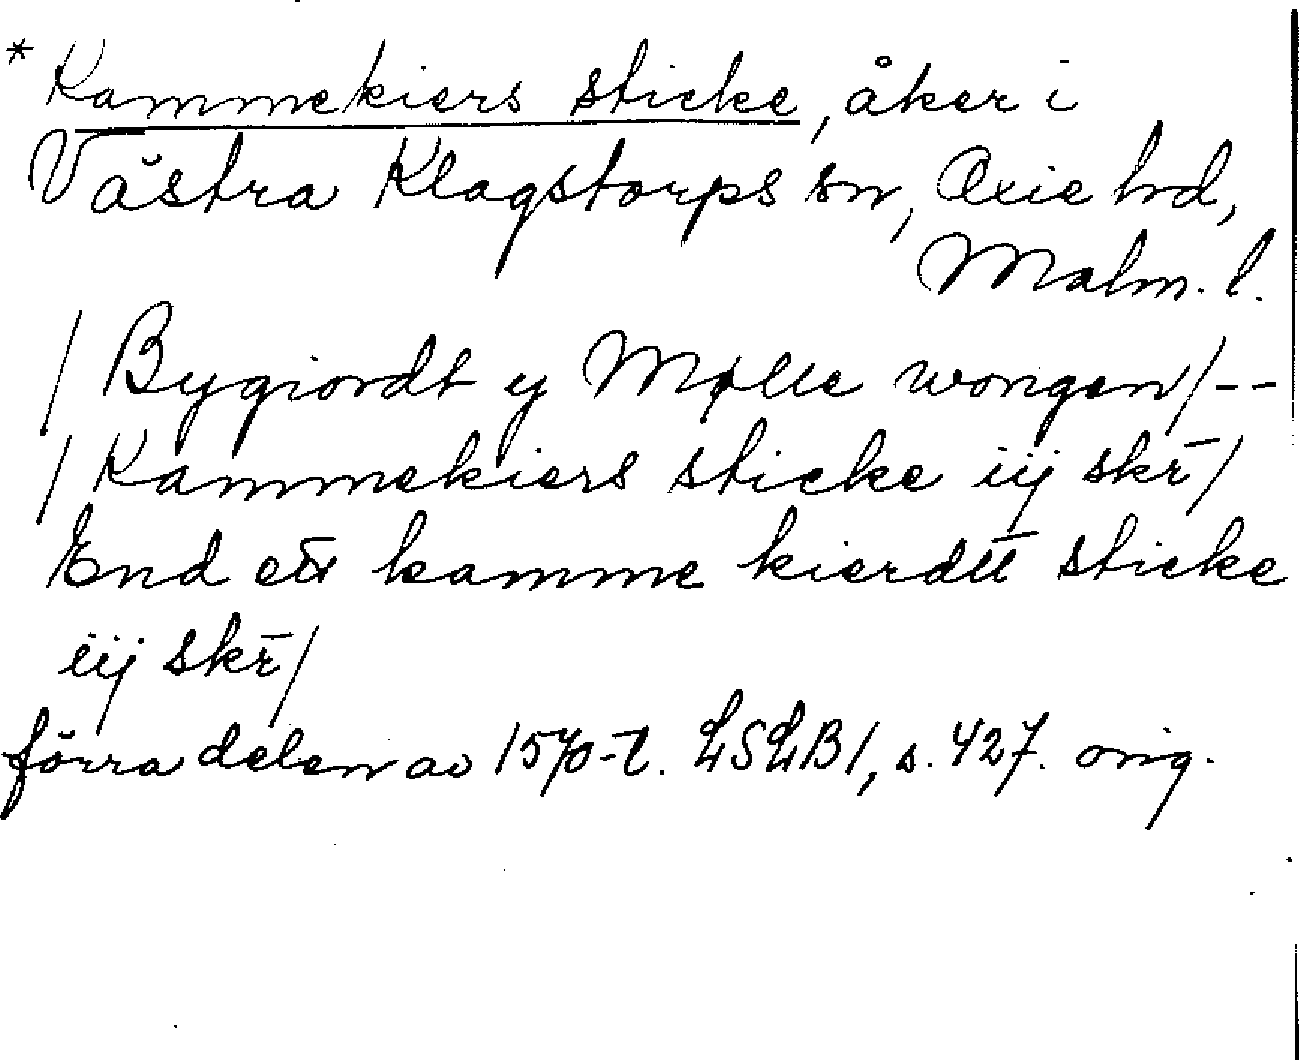 * Kammekiers sticke, åker i
Västra Klagstorps sn, Oxie hd,
Malm. l.
/ Bygiordt y Mølle wongen/--
/ Kammekiers sticke iij skr̄/
End ett kamme kierdtt sticke
iij skr̄/
förra delen av 1570-t. LSLB1, s. 427. orig.